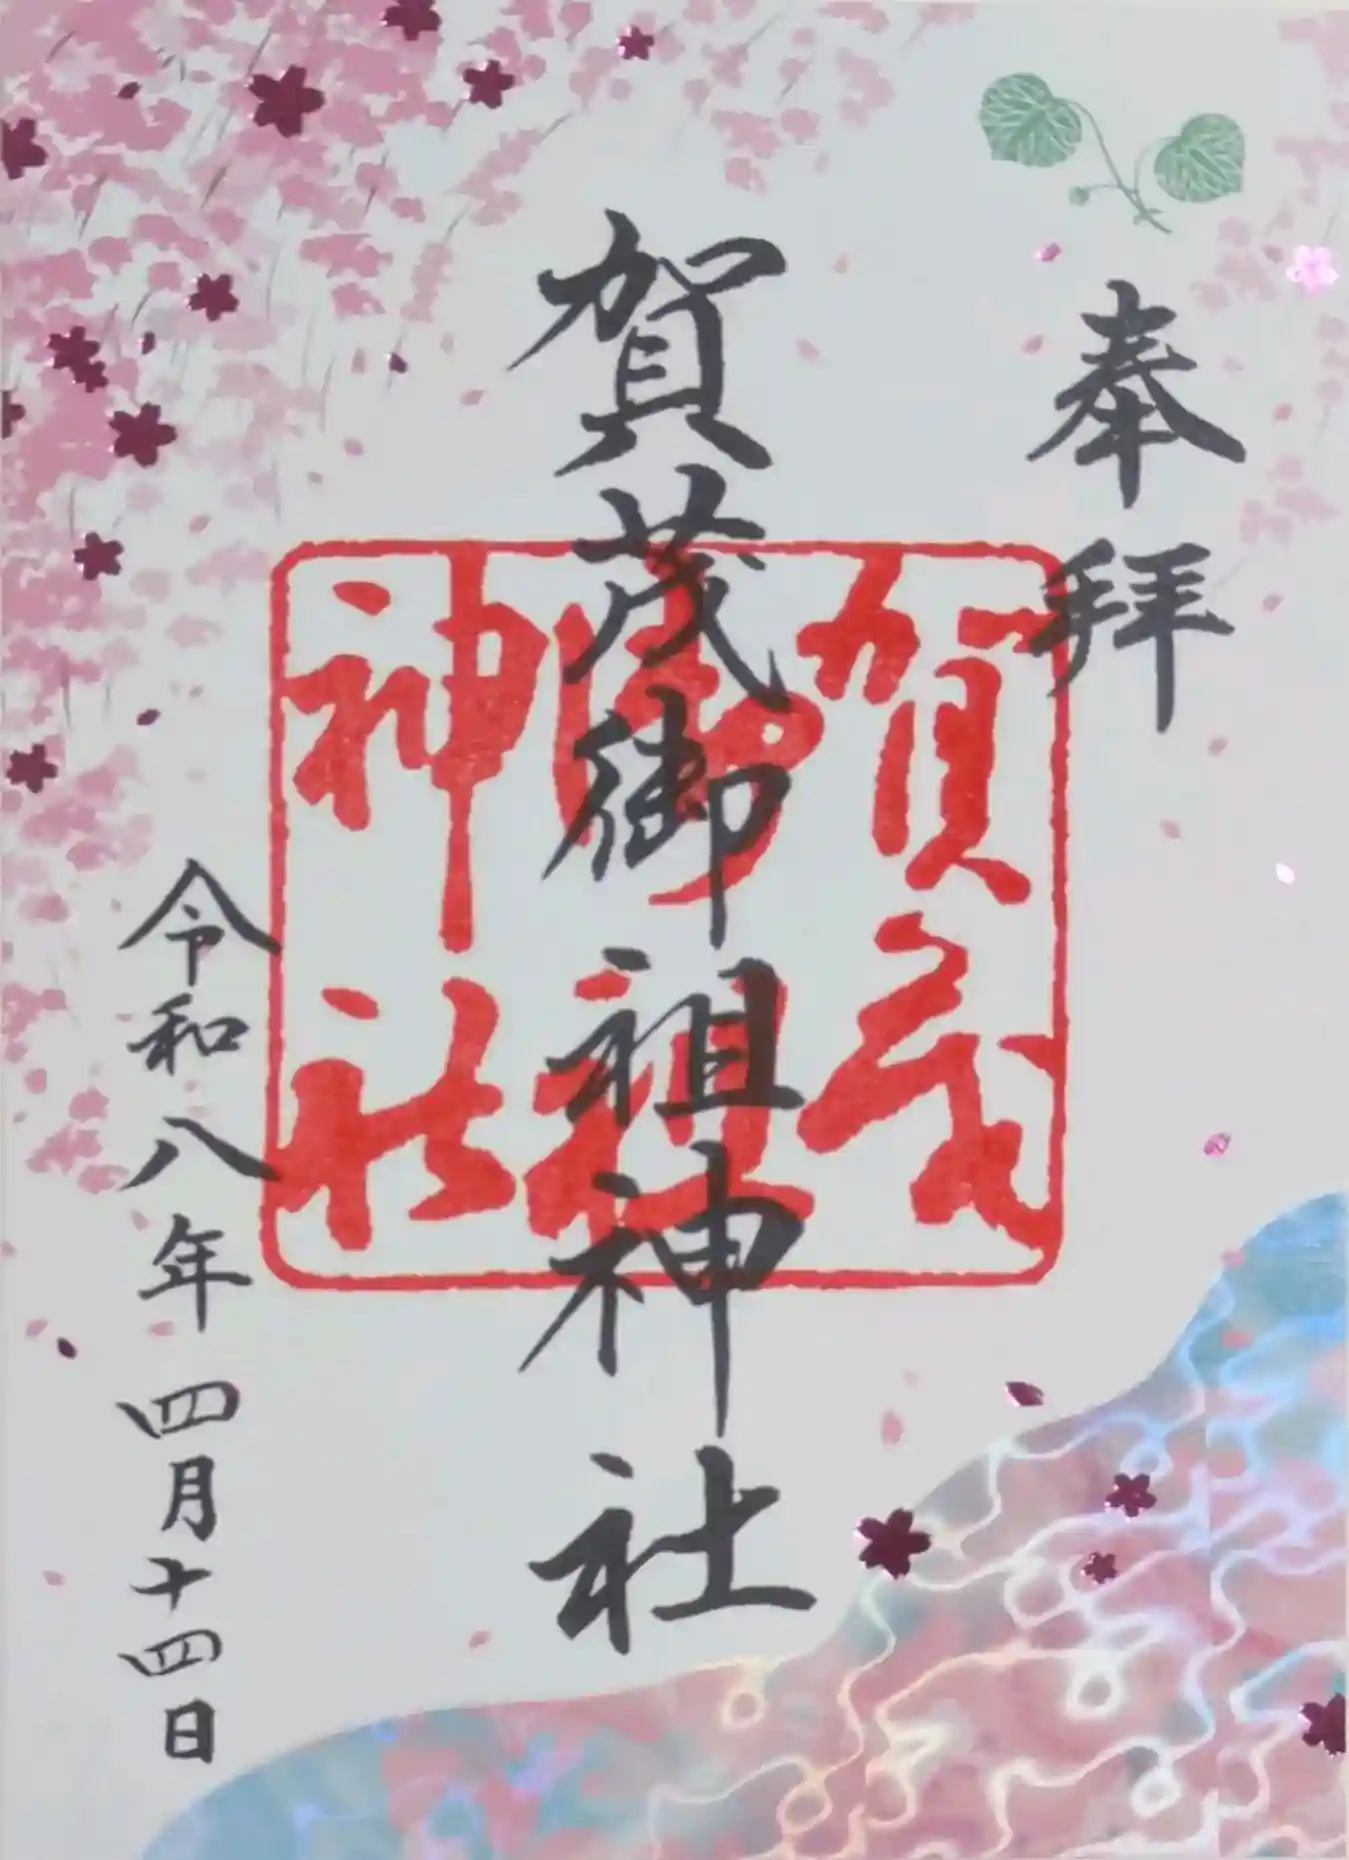 奉拝
賀茂御祖神社
賀茂
御祖
神社
令和八年四月十四日